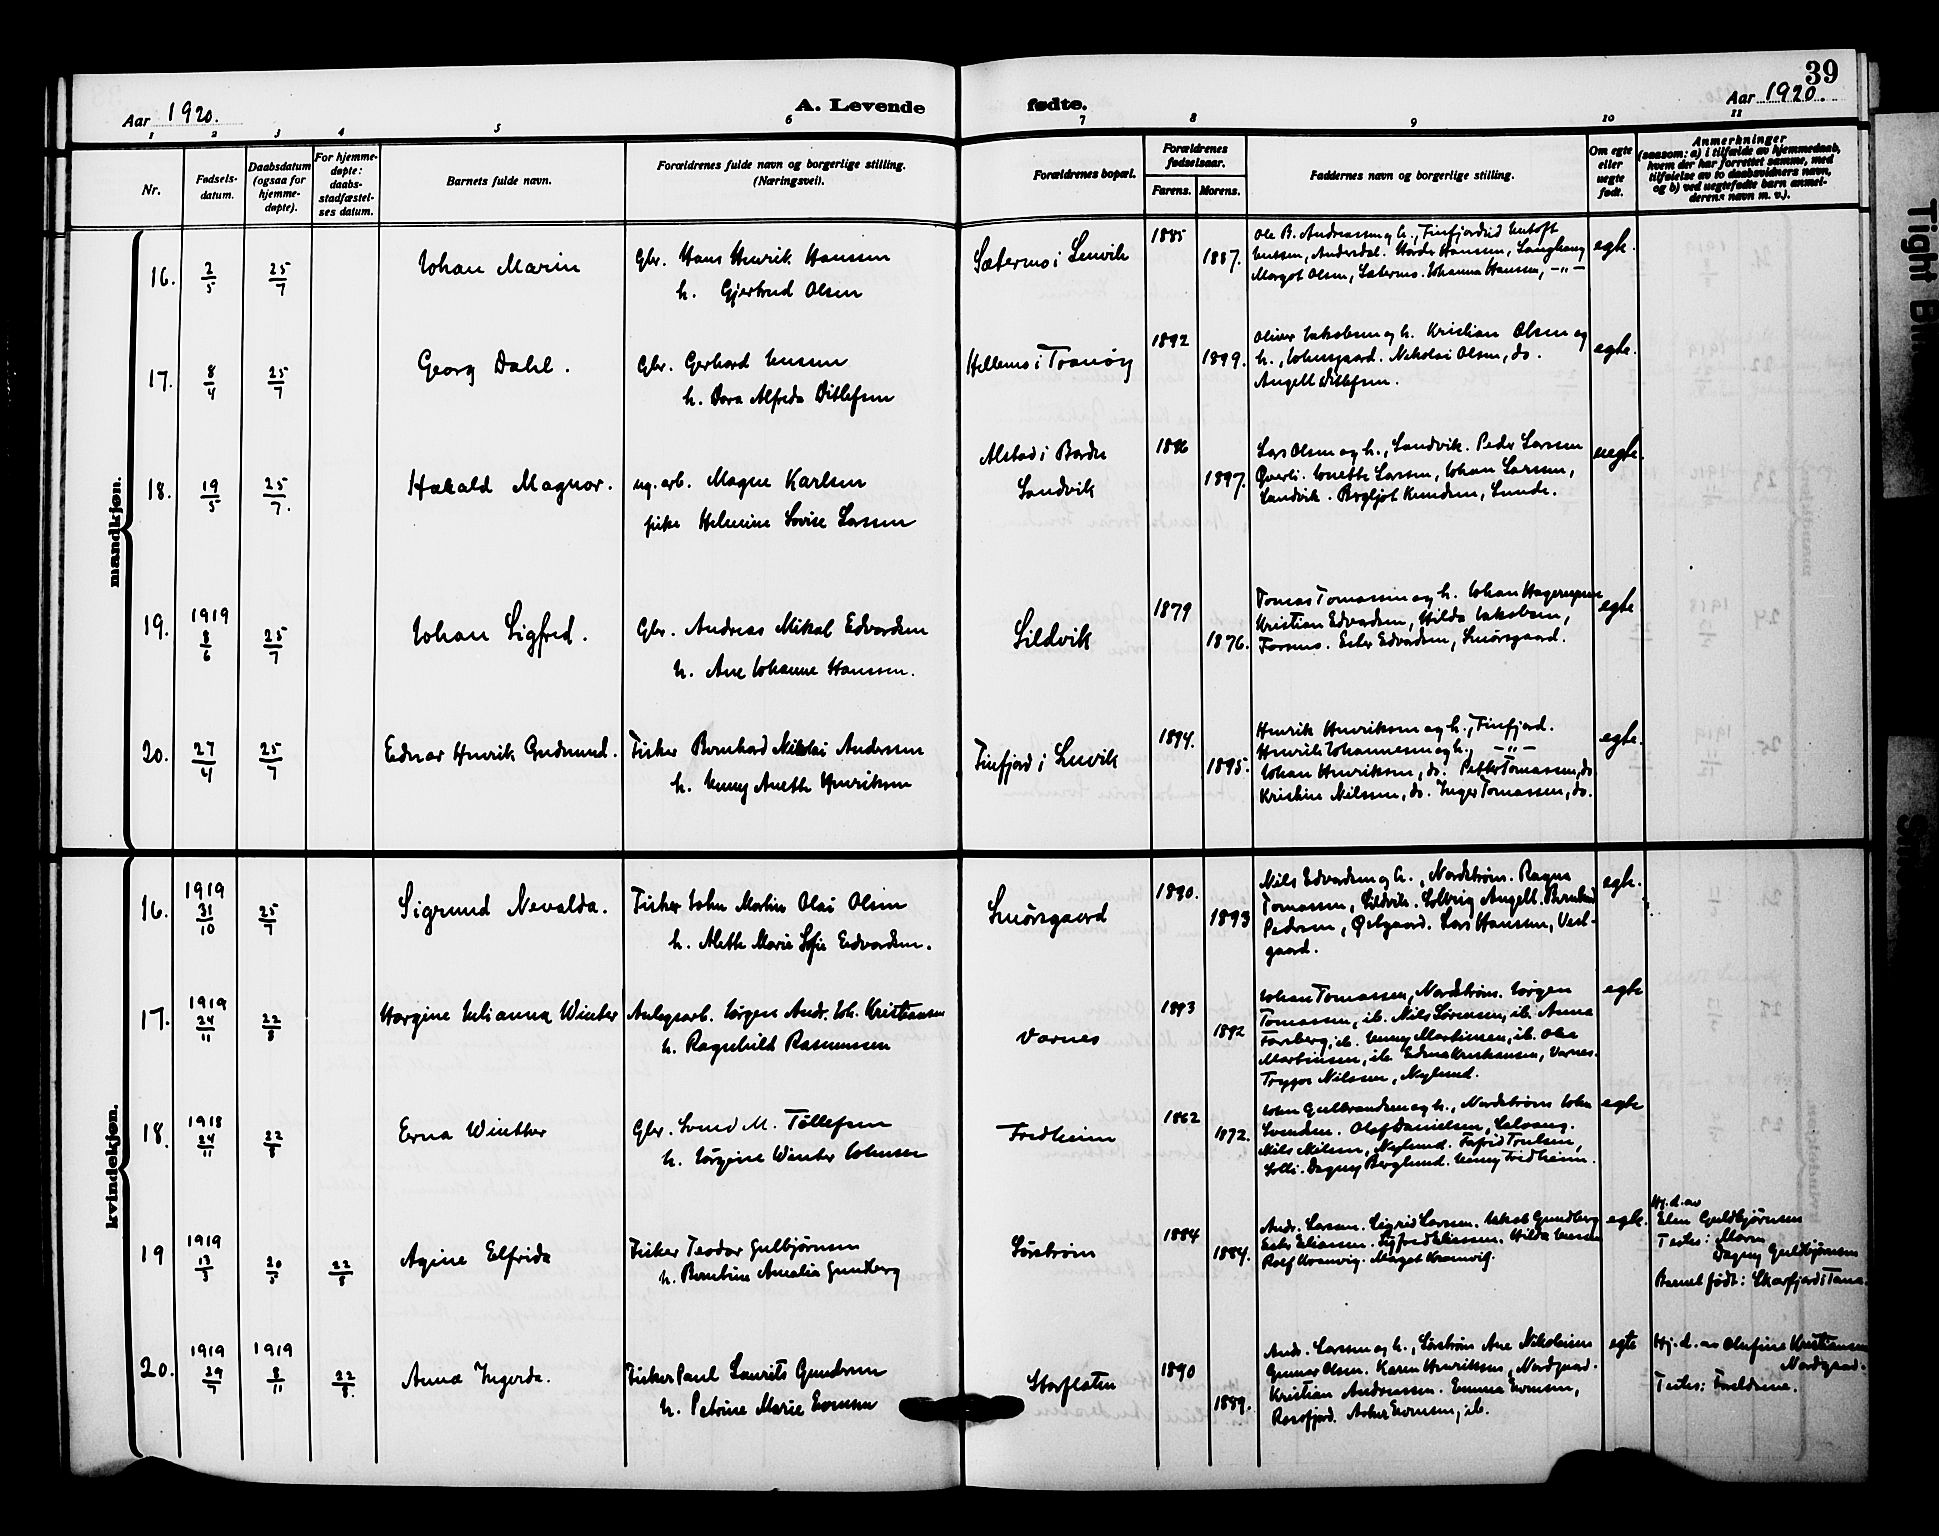 39
Aar 1920. A. Levende fødte. Aar 1920.
1 2 3 4 5 6 7 8 9 10 11
Nr.
Fødsels-
datum.
Daabsdatum
(ogsaa for
hjemme-
døpte).
For hjemme-
døpte:
daabs-
stadfæstel-
ses datum.
Barnets fulde navn.
Forældrenes fulde navn og borgerlige stilling.
(Næringsvei).
Forældrenes bopæl.
Forældrenes
fødselsaar.
Farens. Morens.
Faddernes navn og borgerlige stilling.
Om egte
eller
uegte
født.
Anmerkninger
(saasom: a) i tilfælde av hjemmedaab,
hvem der har forrettet samme, med
tilføielse av to daabsvidners navn,
og b) ved uegtefødte barn anmel-
derens navn m. v.).
mandkjøn.
16. 2/5 25/7 Johan Marin
Gbr. Hans Henrik Hanssen
h. Gjertrud Olsen
Sætermo i Lenvik 1885 1887.
Ole B. Andreassen og h., Finfjord
Margot Olsen, Sætermo. Johanna Hanssen, -"-
egte.
17. 8/4 25/7 Georg Dahl.
Gbr. Gerhard Jenssen
h. Dora Alfreda Ditlefsen
Hellemo i Tranøy 1892 1899.
Oliver Jakobsen og h. Kristian Olsen og
h., Johnsgaard. Nikolai Olsen, do.
Angell Ditlefsen.
egte.
18. 19/5 25/7. Harald Magnor.
ug. arb. Magne Karlsen
pike Helmine Lovise Larsen
Alstad i Bardu
Sandvik
1896 1897.
Lars Olsen og h., Sandvik. Peder Larssen
Øverli. Jonette Larsen, Johan Larssen,
Sandvik. Bergljot Knudsen, Lunde.
uegte.
19. 1919 8/6 25/7 Johan Sigfred.
Gbr. Andreas Mikal Edvardsen
h. Ane Johanne Hanssen.
Sildvik 1879 1876.
Tomas Tomassen og h. Johan
Kristian Edvardsen, Hilda Jakobsen,
Forsmo. Ester Edvardsen, Smørsgaard.
egte
20. 27/4 25/7 Ednar Henrik Gudmund.
Fisker Bernhard Nikolai Andersen
h. Jenny Anette Henriksen
Finfjord i Lenvik 1894. 1895.
Henrik Henriksen og h., Finfjord.
Henrik Johannesen og h., -"-
Johan Henriksen, do. Petter Tomassen, do
Kristine Nilssen, do. Inger Tomassen, do.
egte.
kvindekjøn.
16. 1919 31/10 25/7 Sigrund Nevalda.
Fisker John Martin Olai Olsen
h. Alette Marie Sofie Edvardsen.
Smørsgaard 1890. 1893
Nils Edvardsen og h., Nordstrøm. Ragna
Tomassen, Sildvik. Solveig Angell. Bernhard
Pedersen, Østgaard. Lars Hanssen, Vest-
gaard.
egte.
17. 1919 24/11 22/8 Hargine Julianna Winter
Anlegsarb. Jørgen Andr. Joh. Kristiansen
h. Ragnhild Rasmussen
Varnes 1893 1892
Johan Tomassen, Nordstrøm. Jørgen
Tomassen, ib. Nils Sørensen, ib. Anna
Forsberg, ib. Jenny Martinsen, ib. Ole
Martinsen, ib. Edna Kristiansen, Varnes.
Trygve Nilssen, Nylund.
egte
18. 1918 24/11 22/8 Erna Winther
Gbr. Svend M. Tollefsen
h. Jørgine Winter Johnsen
Fredheim 1862 1872.
John Gulbrandsen og h., Nordstrøm. John
Svendsen. Olaf Danielsen,
Nils Nilsen, Nylund. Truelsen,
Solli. Dagny Berglund. Jenny Fredheim.
egte
19 1919 13/3 20/5 22/8 Agine Elfrida
Fisker Teodor Gulbjørnsen
h. Berntine Amalia Gundberg
Sørstrøm 1884 1884.
Andr. Larsen. Sigrid Larssen. Jakob Gundberg
Ester Eliassen. Sigfred Eliassen. Hilda Jenssen
Rolf Kranvig. Maget Kranvig.
egte.
Hj. d. av
Elen Guldbjørnsen
Testes: Moren
Dagny Guldbjørnsen
Barnet født: Skarfjord i Tana.
20. 1919 29/7 1919 8/11 22/8. Anna Ingerda.
Fisker Paul Laurits Gundersen
h. Petrine Marie Evensen
Storflaten 1890 1889.
Andr. Larssen og h., Sørstrøm. Ane Nikolaisen
Gunnar Olsen. Karen Henrikssen, Nordgaard.
Kristian Andreassen. Emma Evensen,
Rossfjord. Asker Evensen, ib.
egte
Hj. d. av Olufine Kristiansen
Nordgaard.
Testes: Forældrene.
Tight